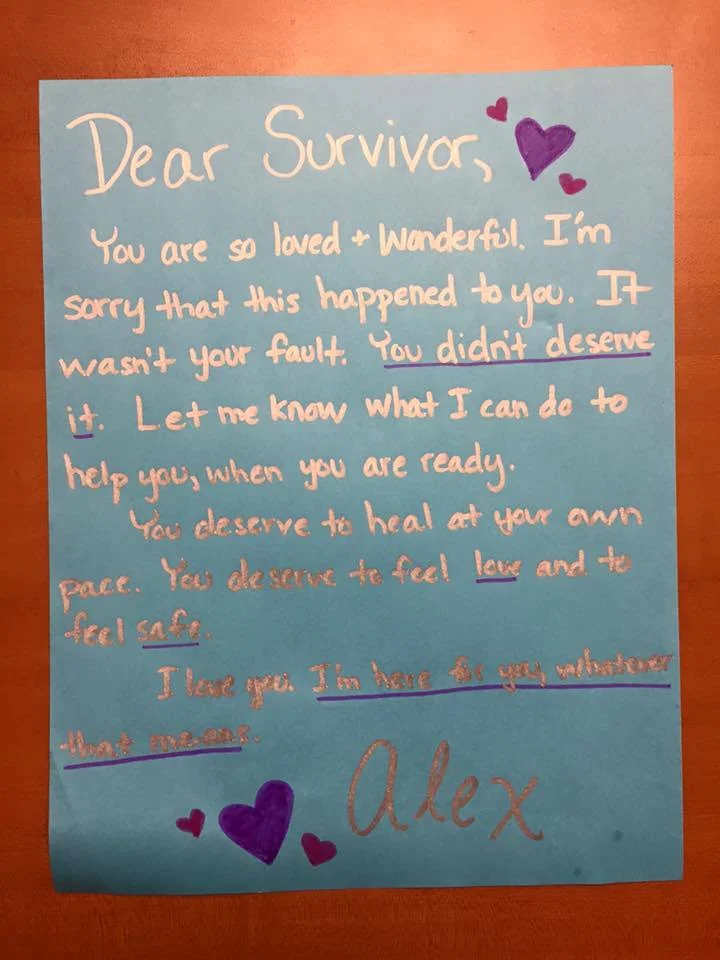 Dear Survivor,
You are so loved + Wonderful. I'm
sorry that this happened to you. It
wasn't your fault. You didn't deserve
it. Let me know what I can do to
help you, when you are ready.
You deserve to heal at your own
pace. You deserve to feel love and to
feel safe.
I love you. I'm here for you, whatever
that means.
Alex